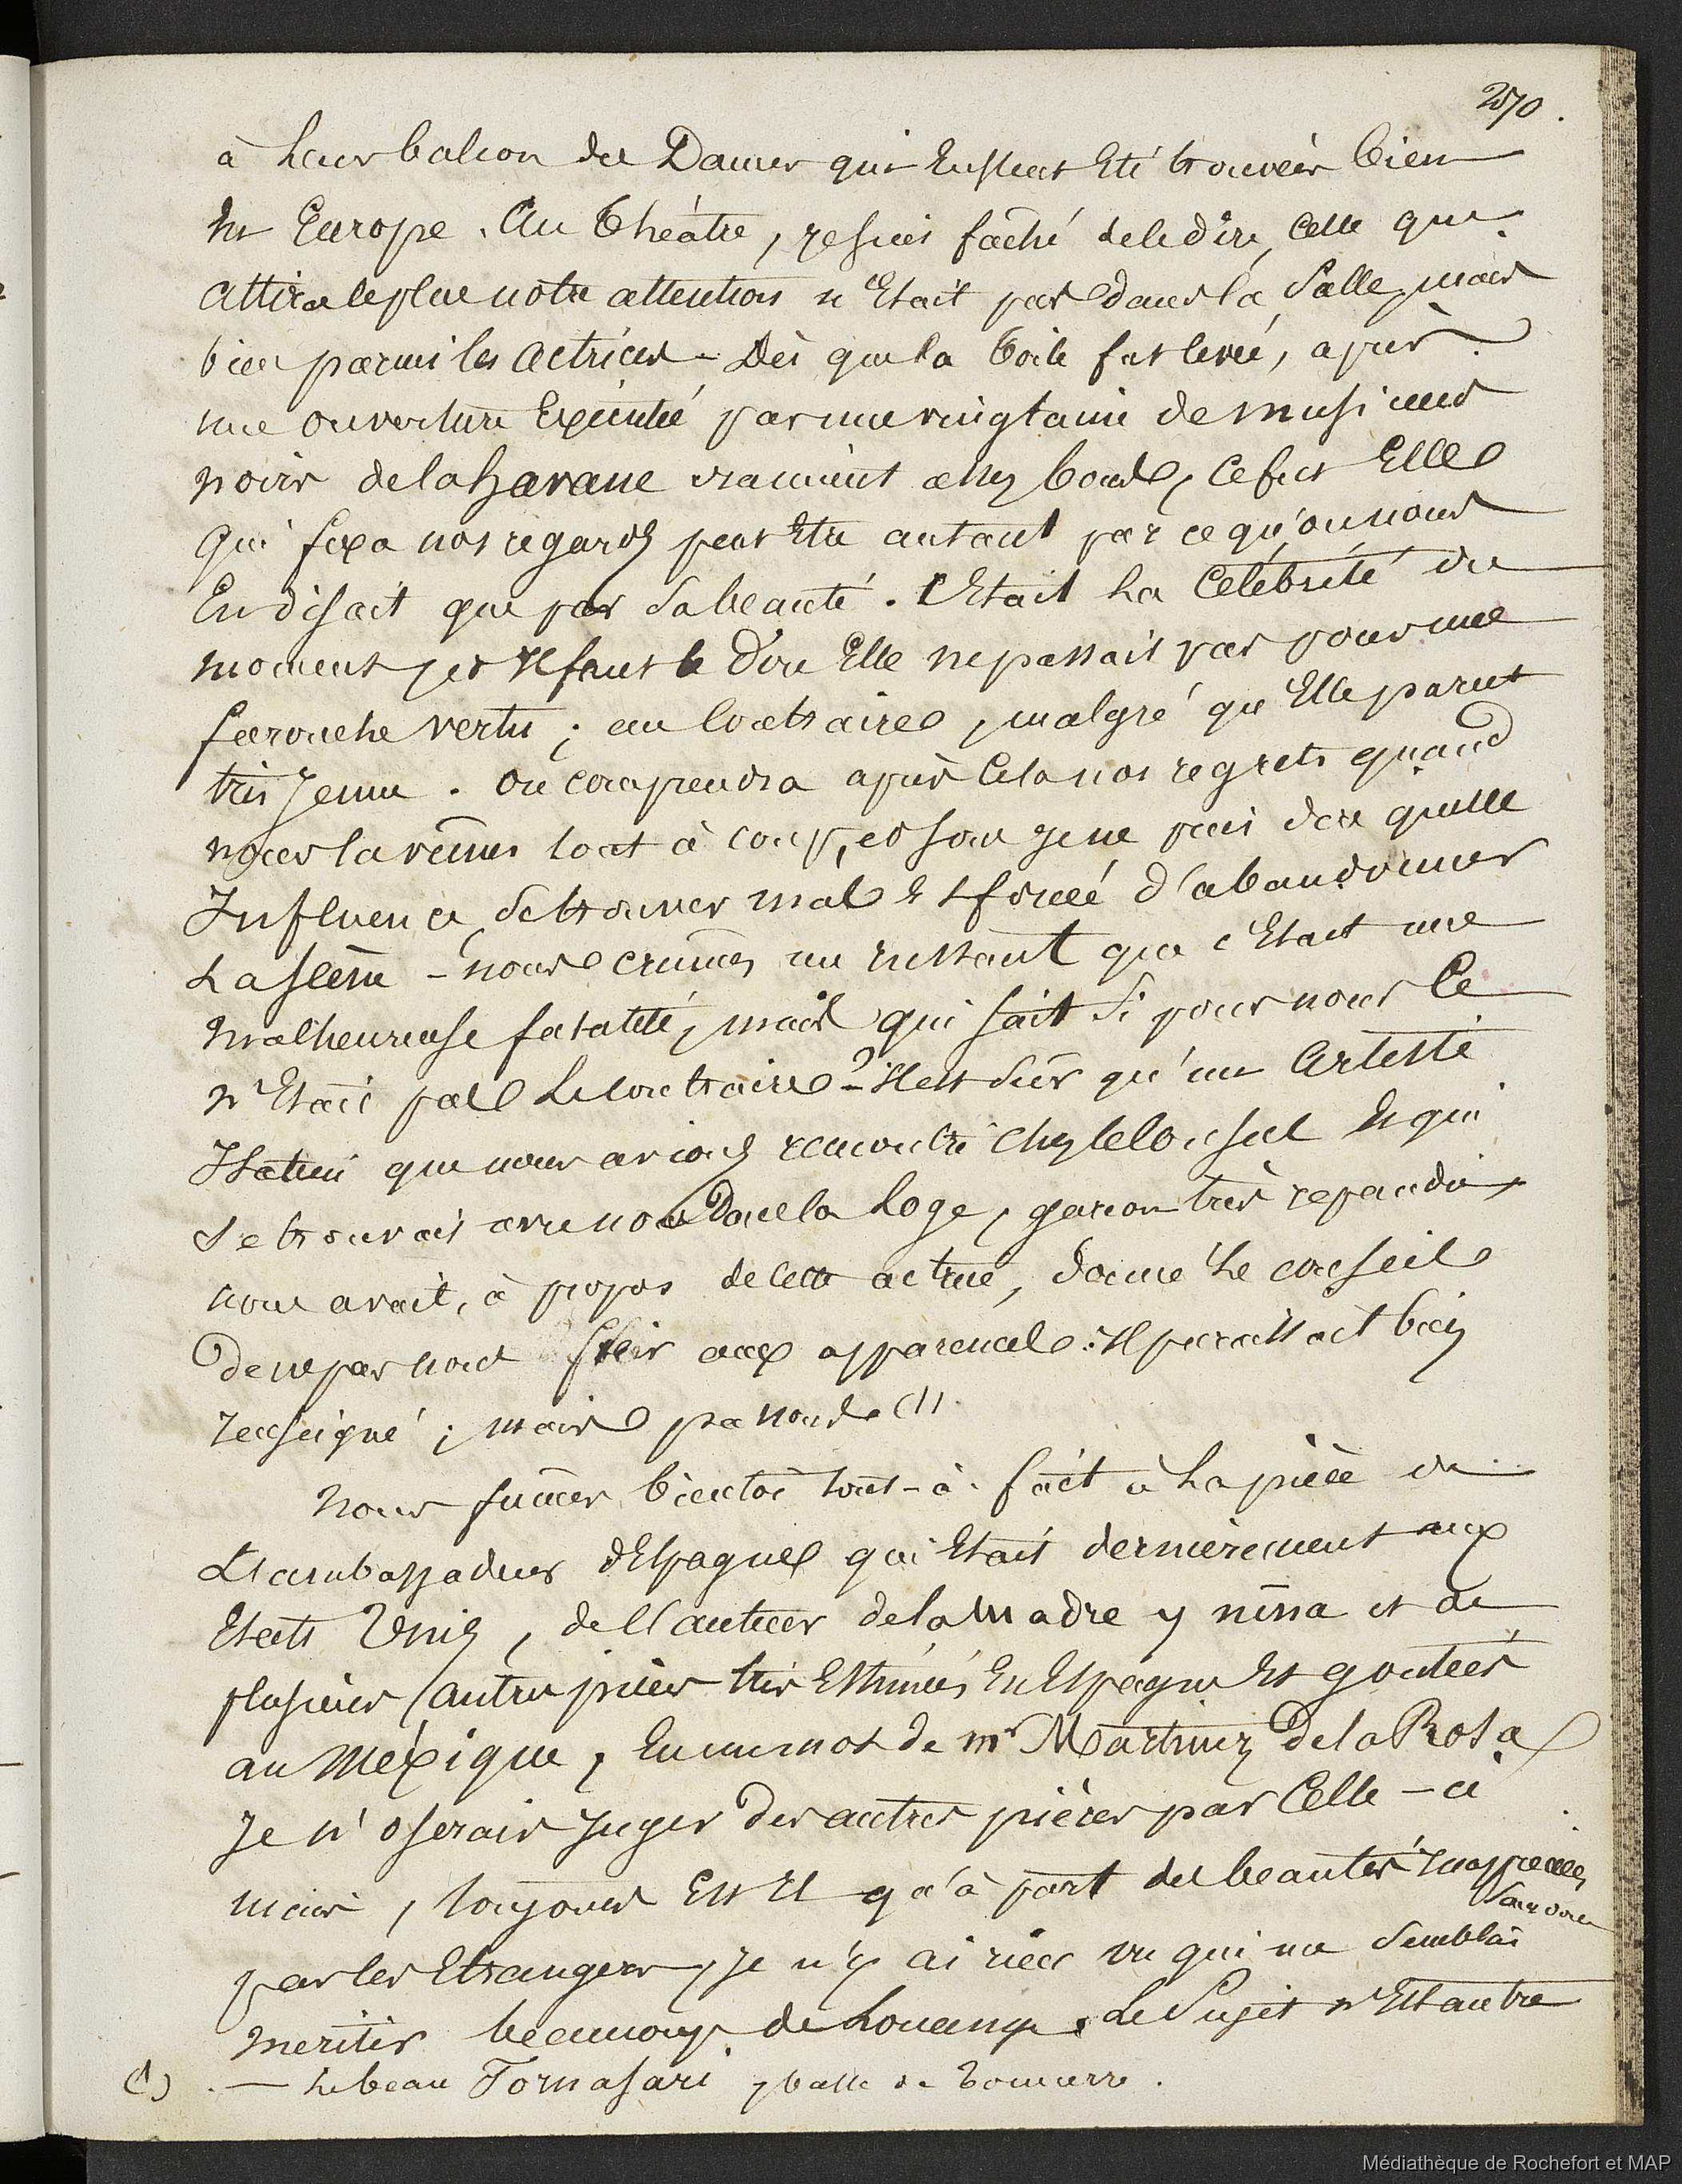 270.
à Leur balcon des Dames qui Eussent Eté trouvées bien
En Europe. Au théâtre, je suis fâché de le dire, Celle qui
attira le plus notre attention n'Etait pas dans la Salle, mais
bien parmi les actrices - Dès que la toile fut levée, après
une ouverture Exécutée par une vingtaine de musiciens
noirs de la havane vraiment assez bons, ce fut Elle
qui fixa nos regards peut Etre autant par ce qu'on nous
En disait que par Sa beauté. C'Etait La Célébrité du
moment et Il faut le dire Elle ne passait pas pour une
farouche vertu; au Contraire, malgré qu'Elle parut
très Jeune. On comprendra après Cela nos regrets quand
nous la vîmes tout à coup, et sous je ne sais dire quelle
Influence, Se trouver mal Et forcée d'abandonner
La scène - nous crûmes un Instant que c'Etait une
malheureuse fatalité, mais qui sait Si pour nous Ce
n'Etait pas Le contraire? - Il est Sûr qu'un Artiste
Italien que nous avions rencontré chez le Consul Et qui
Se trouvait avec nous Dans la Loge, garçon très répandu,
nous avait, à propos de cette actrice, donné Le conseil
De ne pas nous fier aux apparences: Il paraissait bien
renseigné; mais passons (1)
Nous fûmes bientôt tout-à-fait à La pièce de
L'ambassadeur d'Espagne qui Etait dernièrement aux
Etats Unis, de l'auteur de la Madre y niña et de
plusieurs autres pièces très Estimées En Espagne Et goutées
au Méxique, En un mot de mr Martinez De la Rosa
Je n'oserais Juger Des autres pièces par Celle-ci
mais, toujours Est Il qu'à part des beautés Inappréciées
Sans doute
par les Etrangers, je n'y ai rien vu qui me Semblât
meriter beaucoup de Louange. Le Sujet n'Est autre
(1) - Le beau Tomasari, basse de